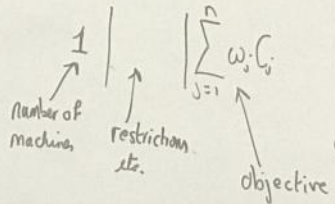 1 | | ∑ⁿⱼ₌₁ ωⱼ Cⱼ
number of
machines
restrictions
etc.
objective